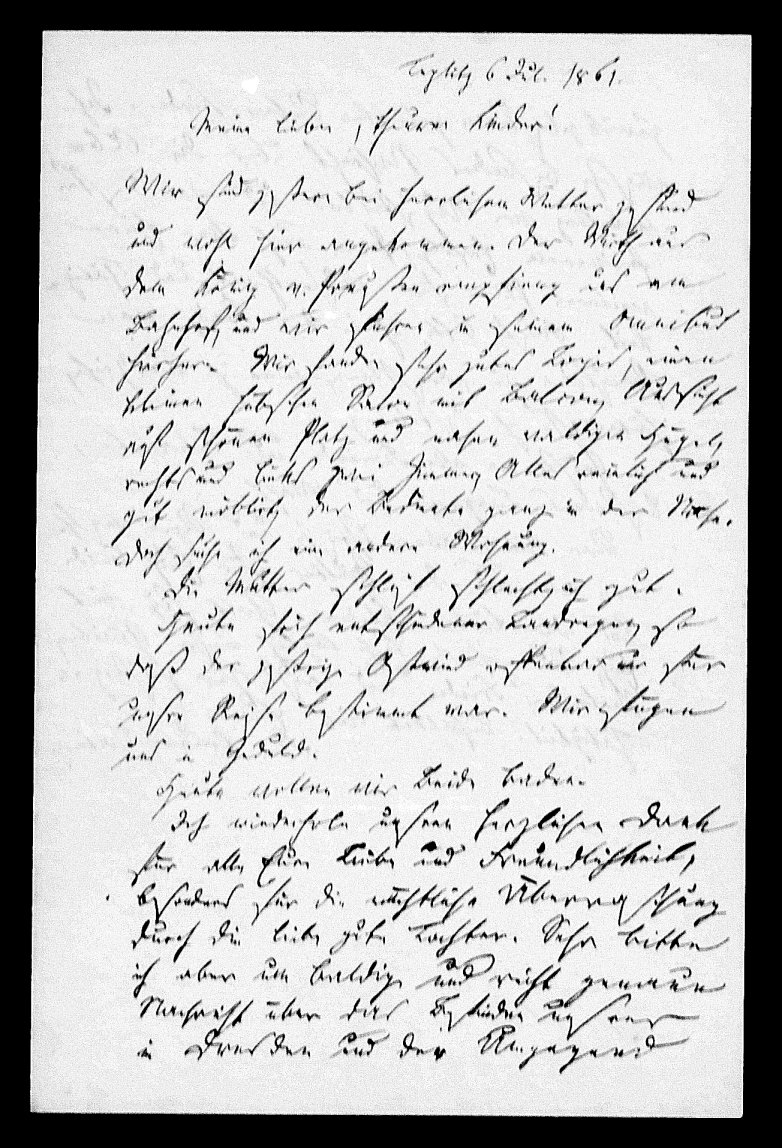 Teplitz 6 Jul. 1861.
Meine lieben, theuren Kinder!
Wir sind gestern bei herrlichem Wetter gesund
und wohl hier angekommen. Der Wirth aus
dem König v. Preußen empfieng uns am
Bahnhof, und wir fuhren in seinem Omnibus
hierher. Wir fanden sehr gutes Logis, einen
kleinen hübschen Salon mit Balcon, Aussicht
auf schönen Platz und nahen waldigen Hügel,
rechts und links zwei Zimmer, Alles reinlich und
gut möblirt, der Badearzt ganz in der Nähe.
Doch suche ich eine andere Wohnung.
Die Mutter schlief schlecht, ich gut.
Heute früh entschiedener Landregen, so
daß der gestrige Ostwind offenbar nur für
unsre Reise bestimmt war. Wir fügen
uns in Geduld.
Heute wollen wir Beide baden.
Ich wiederhole unsern herzlichen Dank
für alle Eure Liebe und Freundlichkeit,
besonders für die nächtliche Überraschung
durch die liebe gute Tochter. Sehr bitte
ich aber um baldige und recht genaue
Nachricht über das Befinden unsrer
in Dresden und der Umgegend